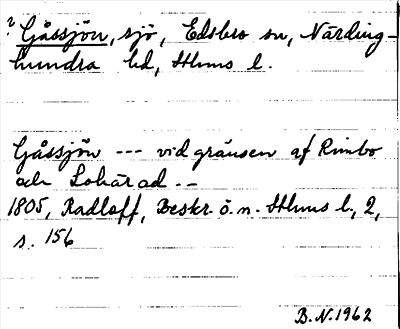 ? Gåssjön, sjö, Edsbro sn, Närding-
hundra hd, Sthlms l.
Gåssjön --- vid gränsen af Rimbo
och Lohärad --
1805, Radloff, Beskr. ö. n. Sthlms l., 2,
s. 156
B.N. 1962